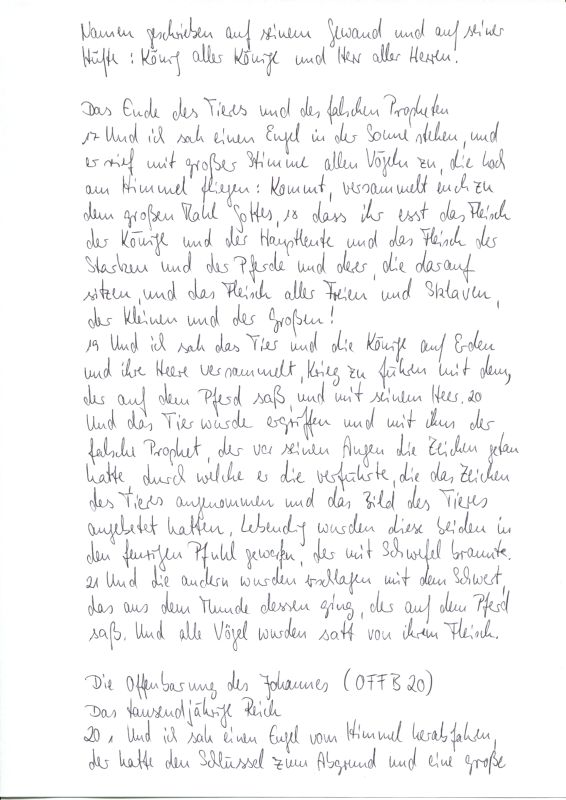 Namen geschrieben auf seinem Gewand und auf seiner
Hüfte : König aller Könige und Herr aller Herren.
Das Ende des Tieres und des falschen Propheten
17 Und ich sah einen Engel in der Sonne stehen, und
er rief mit großer Stimme allen Vögeln zu, die hoch
am Himmel fliegen : Kommt, versammelt euch zu
dem großen Mahl Gottes, 18 dass ihr esst das Fleisch
der Könige und der Hauptleute und das Fleisch der
Starken und der Pferde und derer, die darauf
sitzen, und das Fleisch aller Freien und Sklaven,
der Kleinen und der Großen !
19 Und ich sah das Tier und die Könige auf Erden
und ihre Heere versammelt, Krieg zu führen mit dem,
der auf dem Pferd saß, und mit seinem Heer. 20
Und das Tier wurde ergriffen und mit ihm der
falsche Prophet, der vor seinen Augen die Zeichen getan
hatte, durch welche er die verführte, die das Zeichen
des Tieres angenommen und das Bild des Tieres
angebetet hatten. Lebendig wurden diese beiden in
den feurigen Pfuhl geworfen, der mit Schwefel brannte.
21 Und die andern wurden erschlagen mit dem Schwert,
das aus dem Munde dessen ging, der auf dem Pferd
saß. Und alle Vögel wurden satt von ihrem Fleisch.
Die Offenbarung des Johannes (OFFB 20)
Das tausendjährige Reich
20 1 Und ich sah einen Engel vom Himmel herabfahren,
der hatte den Schlüssel zum Abgrund und eine große